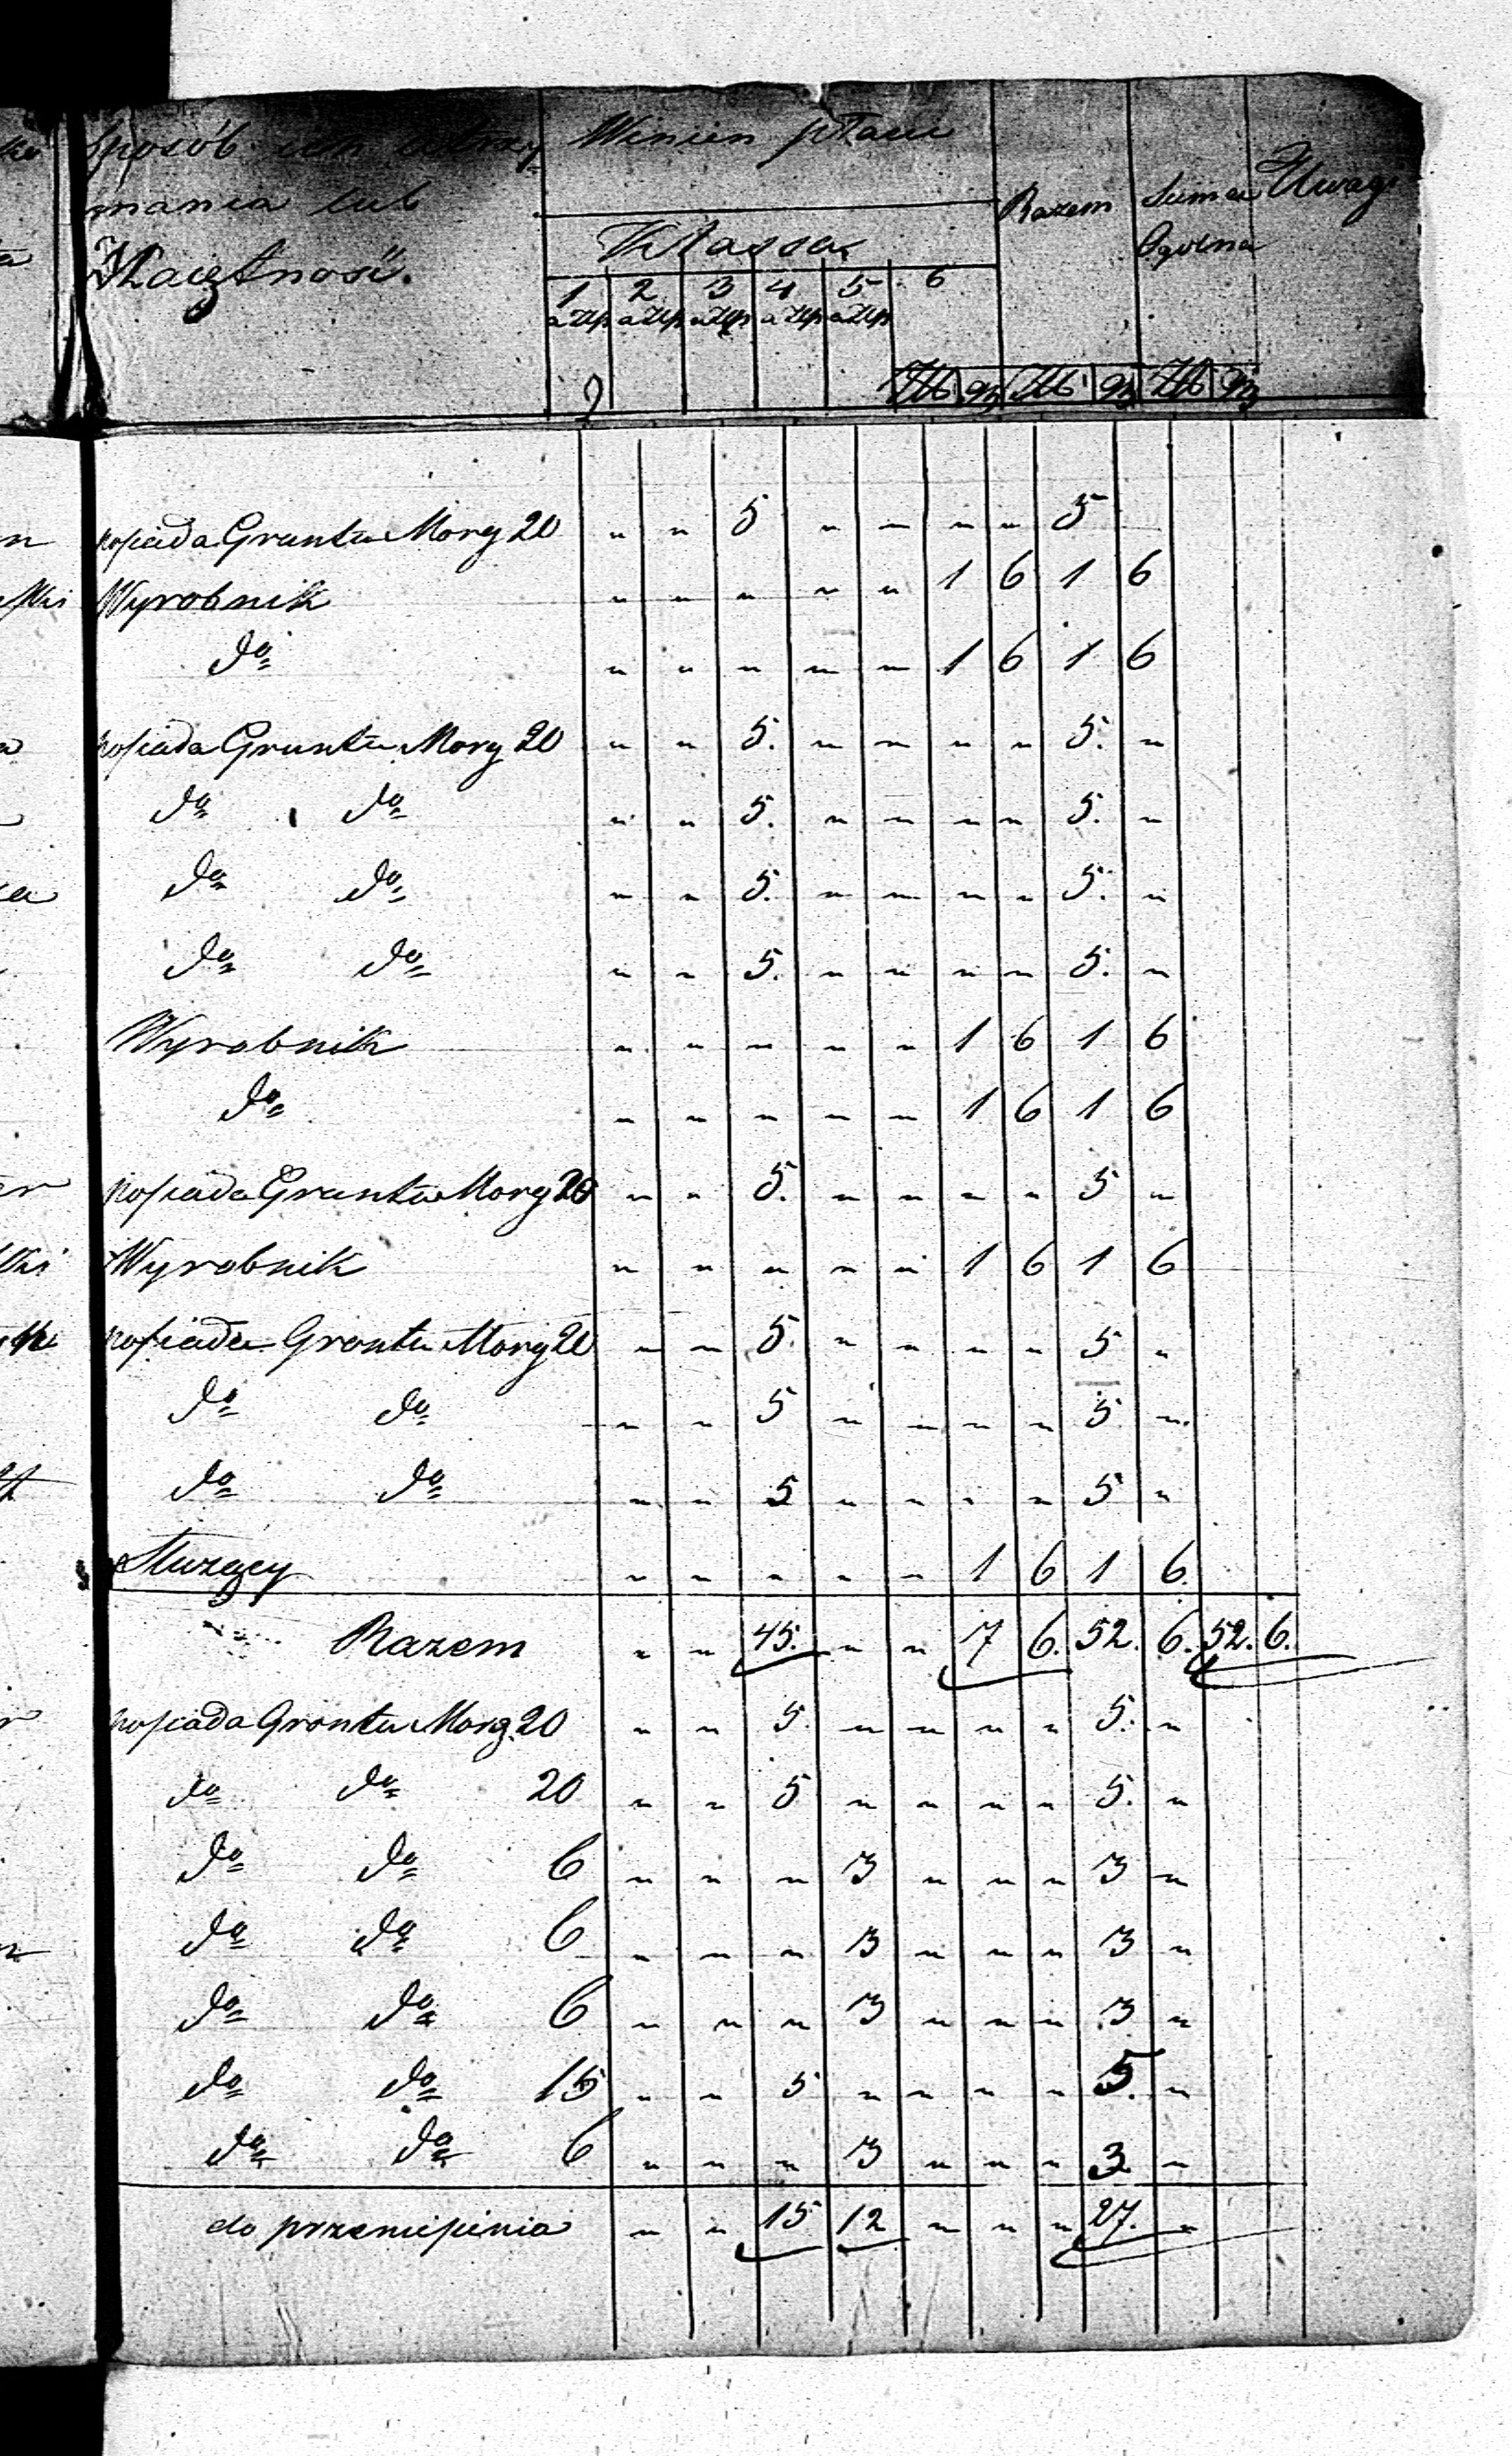 Sposób ich utrzy= Winien płacić
mania lub
Majętność.
Klassa Razem Summa Uwagi
Ogólna
1 2 3 4 5 6
a Złp a Złp a Złp a Złp a Złp
Zł: gr Zł: gr Zł: gr
posiada Gruntu Morg 20 " " 5 " " " " 5
Wyrobnik " " " " " 1 6 1 6
do " " " " " 1 6 1 6
posiada Gruntu Morg 20 " " 5. " " " " 5. "
do do " " 5. " " " " 5. "
do do " " 5. " " " " 5. "
do do " " 5. " " " " 5. "
Wyrobnik " " " " " 1 6 1 6
do " " " " " 1 6 1 6
posiada Gruntu Morg 20 " " 5. " " " " 5 "
Wyrobnik " " " " " 1 6 1 6
posiada Grontu Morg 20 " " 5. " " " " 5 "
do do " " 5 " " " " 5. "
do do " " 5 " " " " 5 "
Służący " " " " " 1 6 1 6.
Razem " " 45. " " 7 6. 52. 6. 52. 6.
posiada Grontu Morg. 20 " " 5. " " " " 5. "
do do 20 " " 5 " " " " 5. "
do do 6 " " " 3 " " " 3 "
do do 6 " " " 3 " " " 3 "
do do 6 " " " 3 " " " 3 "
do do 15 " " 5 " " " " 5. "
do do 6 " " " 3 " " " 3 "
do przeniesienia " " 15 12 " " " 27. "